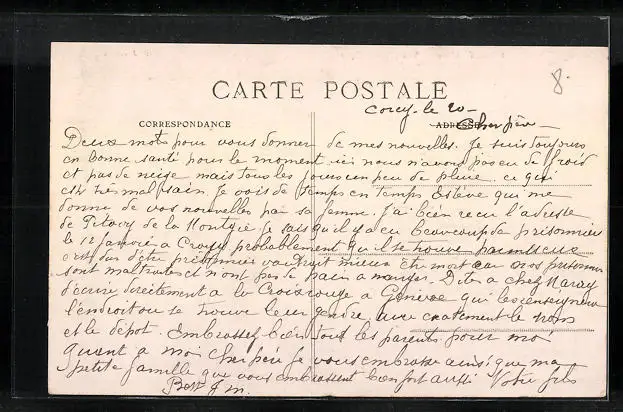 CARTE POSTALE
8.
Corcy. le 20 -
CORRESPONDANCE
ADRESSE
Cher père -
Deux mots pour vous donner de mes nouvelles. Je suis toujours
en bonne santé pour le moment ici nous n'avons pas eu de froid
et pas de neige mais tous les jours un peu de pluie. ce qui
est très mal sain. Je vois de temps en temps Estève qui me
donne de vos nouvelles par sa femme. J'ai bien recu l'adresse
de de la Montgie je sais qu'il y a eu beaucoup de prisonniers
le 12 Janvier a Crouy probablement qu'il se trouve parmi eux
est sur d'être prisonnier vaudrait mieux être mort car nos prisonniers
sont maltraites et n'ont pas de pain a manger. Dites a chez
d'écrire directement a la Croix rouge a Genève qui les renseignera
l'endroit ou se trouve leur gendre. avec exactement le nom
et le dépot. Embrassez bien tout les parents pour moi
quant a moi cher père je vous embrasse ainsi que ma
petite famille que vous embrassent bien fort aussi Votre fils